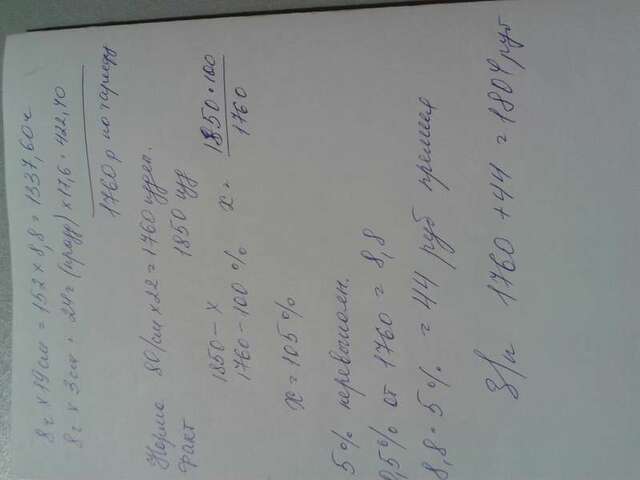 8ч х 19см = 152 х 8,8 = 1337,60ч
8ч х 3см = 24 = (празд) х 17,6 = 422,40
1760р по тарифу
Норма 80/см х 22 = 1760 издел.
Факт 1850 изд
1850 – х
1760 – 100% х = 1850 • 100 / 1760
х = 105%
5% перевыполн.
0,5% от 1760 = 8,8
8,8 • 5% = 44 руб премия
З/п 1760 + 44 = 1804 руб